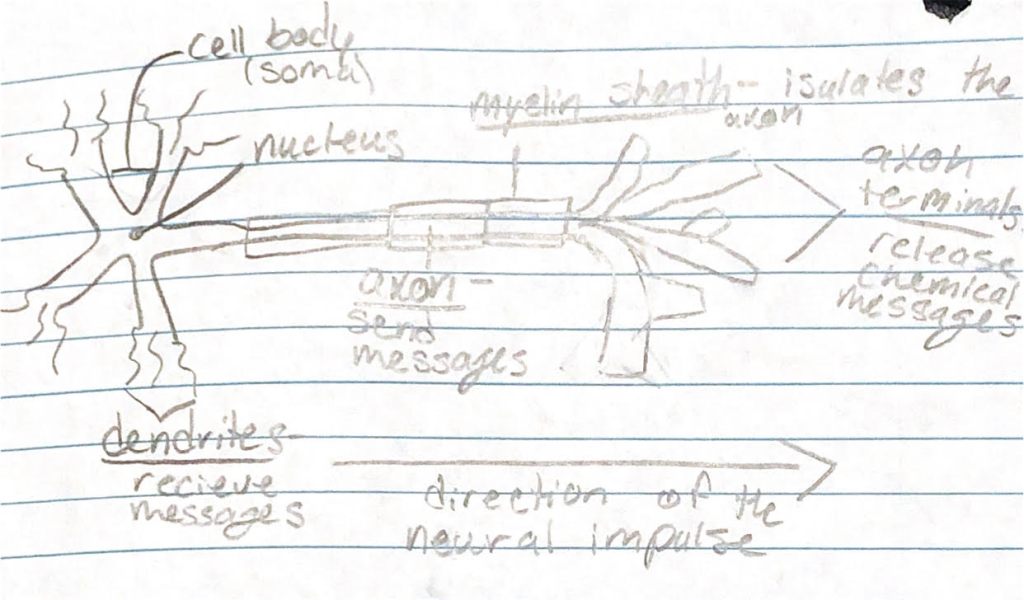 cell body
(soma)
myelin sheath - isulates the
axon
nucleus
axon
terminals
release
chemical
messages
axon -
send
messages
dendrites-
recieve
messages
direction of the
neural impulse